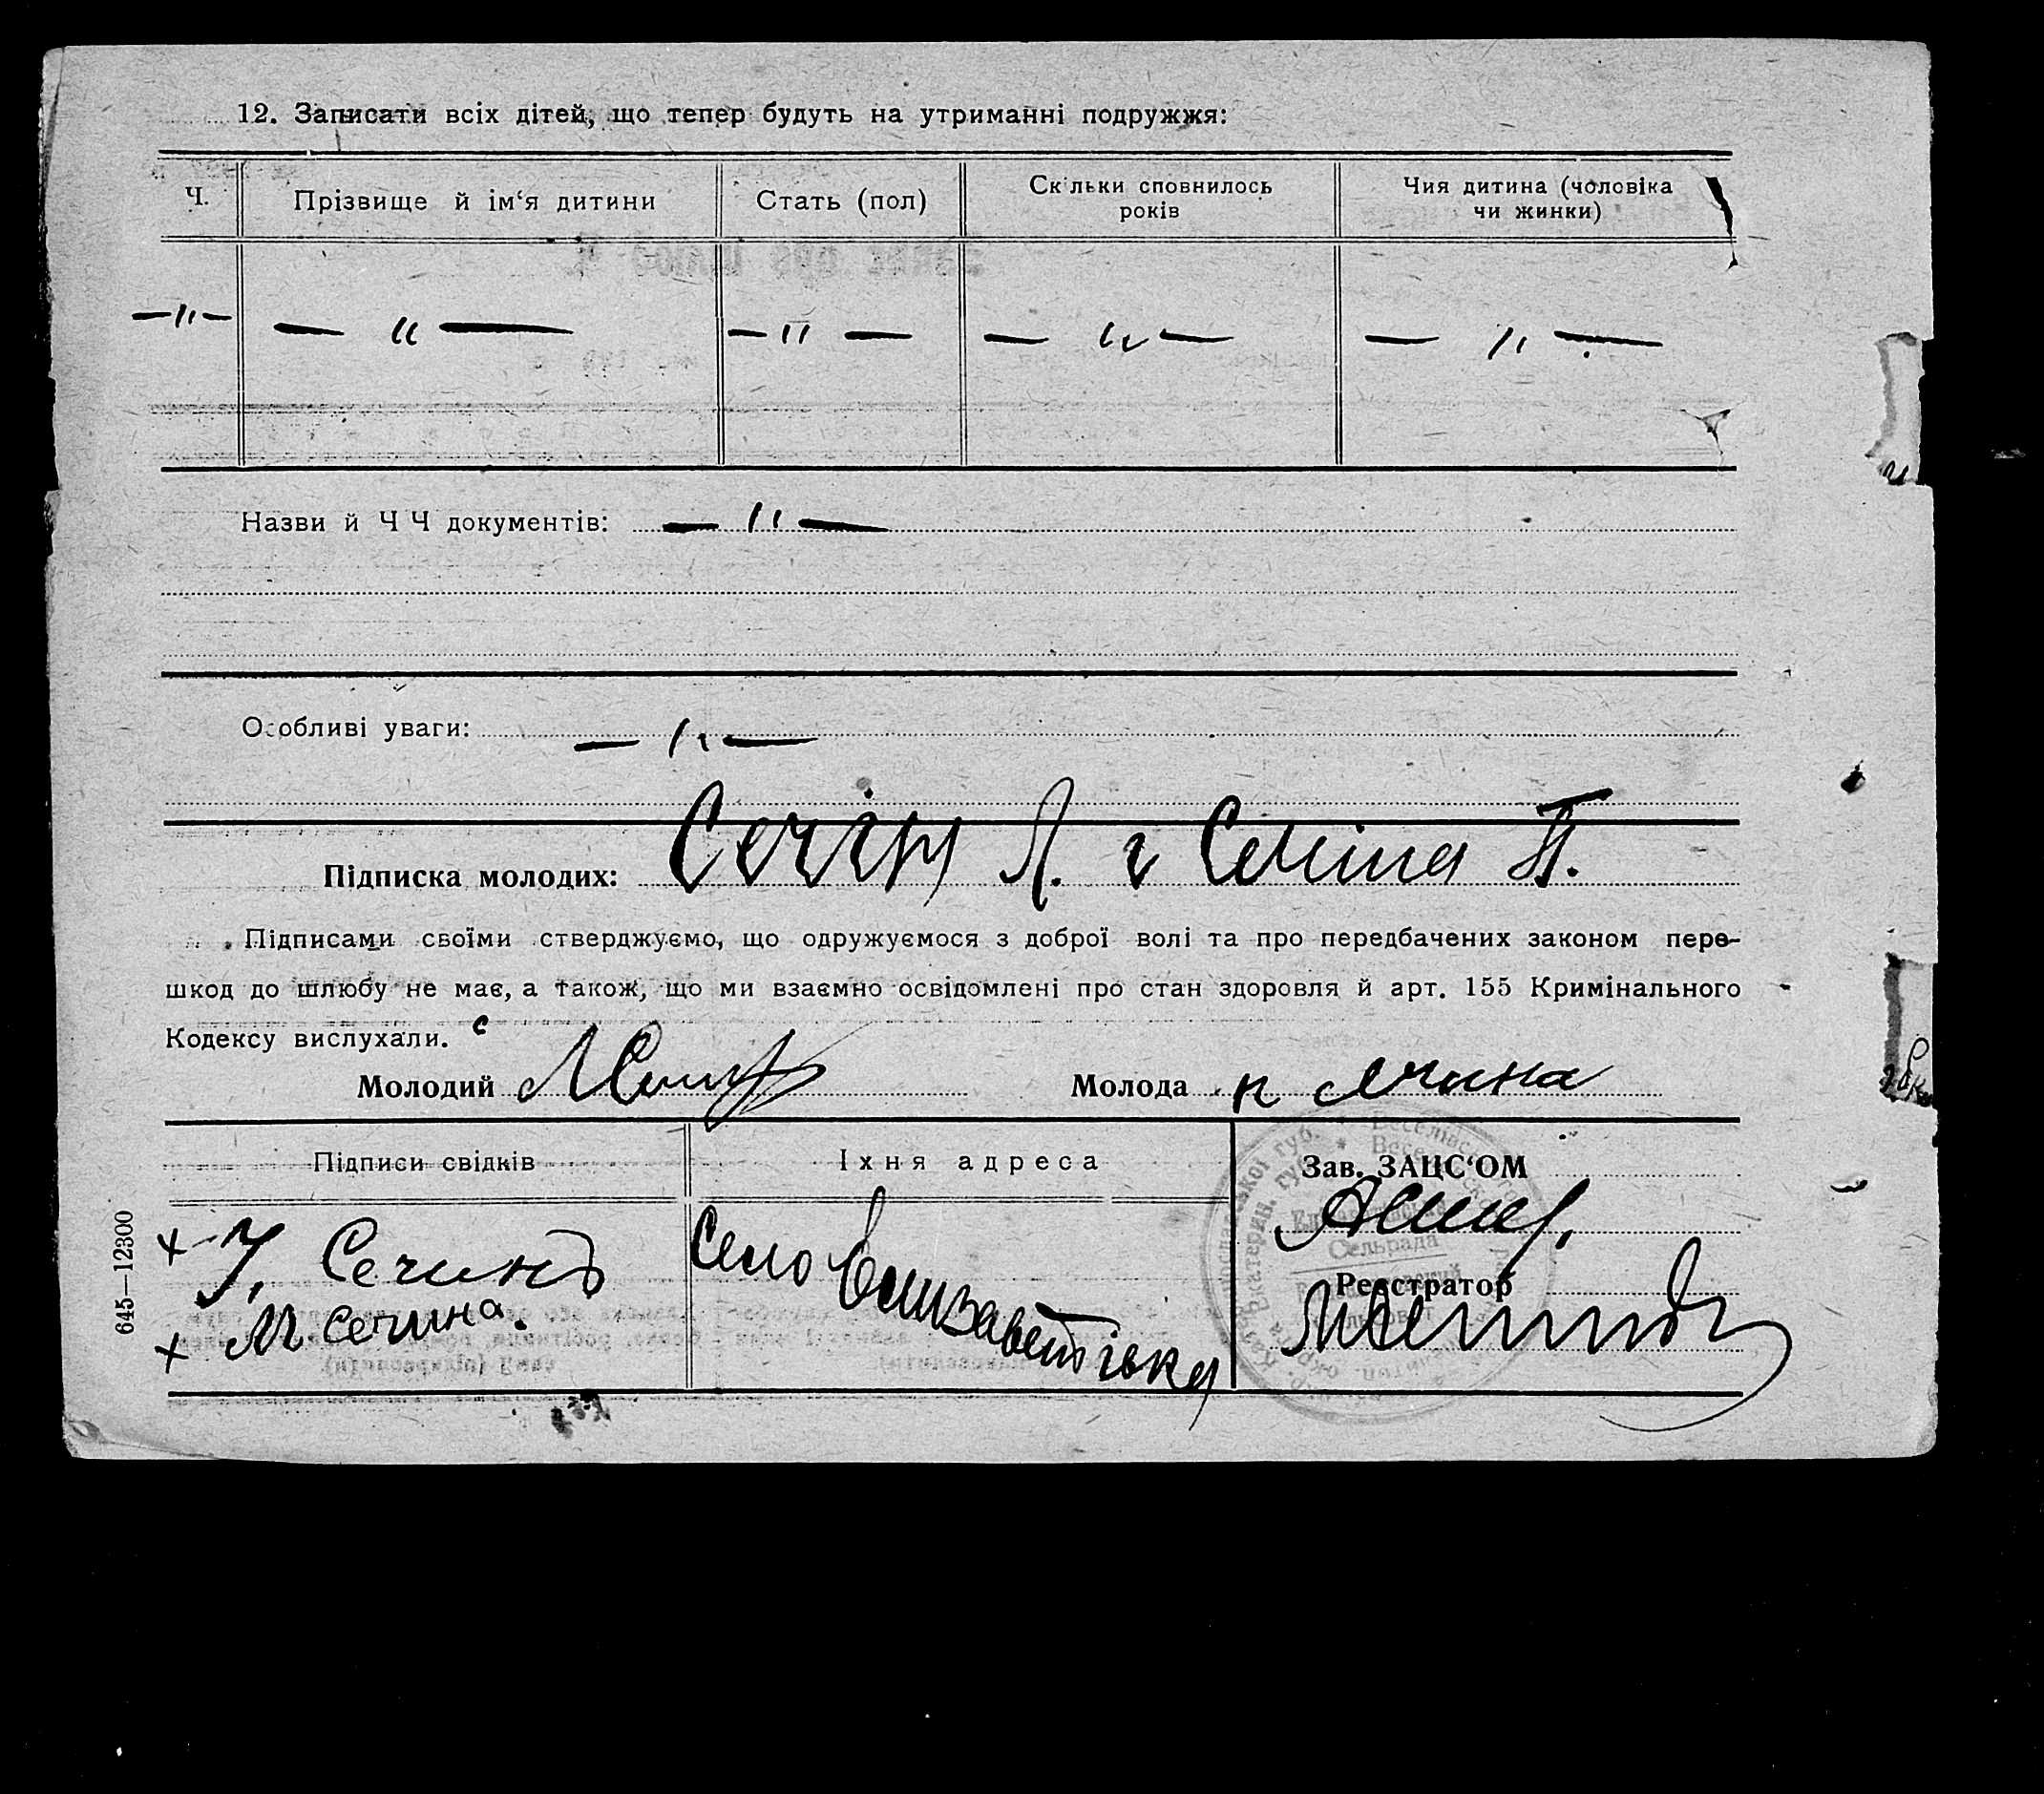 12. Записати всіх дітей, що тепер будуть на утриманні подружжя:
Ч. Прізвище й ім‘я дитини Стать (пол) Скільки сповнилось років Чия дитина (чоловіка чи жинки)
—〃— —〃— —〃— —〃— —〃—
Назви й Ч Ч документів: —〃—
Особливі уваги: —〃—
Підписка молодих: Сечін Я. і Сечіна П.
Підписами своїми стверджуємо, що одружуємося з доброї волі та про передбачених законом пере-
шкод до шлюбу не має, а також, що ми взаємно освідомлені про стан здоровля й арт. 155 Кримінального
Кодексу вислухали.
Молодий Молода
Підписи свідків Їхня адреса Зав. ЗАЦС‘ОМ
Сечинъ Село Єлизаветівка
Сельрада
Реєстратор
М. Сечина.
645—12300